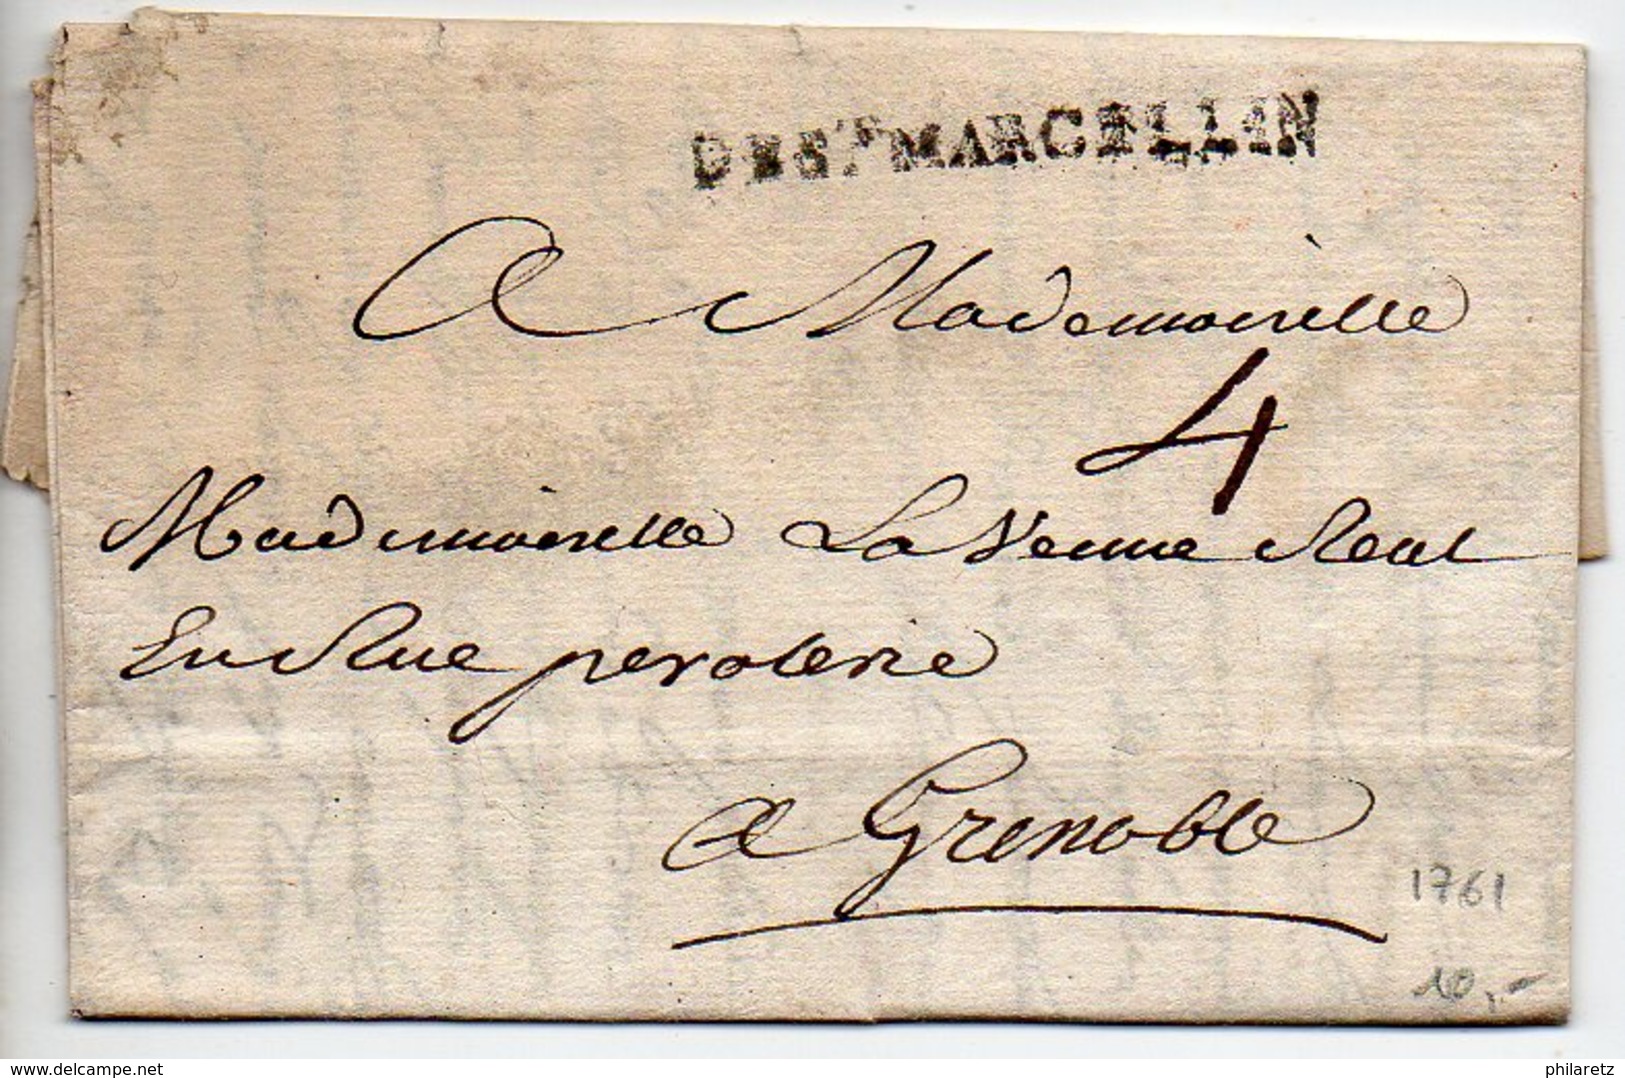 DEST MARCELLIN
A Mademoiselle
4
Mademoiselle La Veuve Réal
En Rue peroterie
a Grenoble
1761
10,-
delcampe.net
philaretz